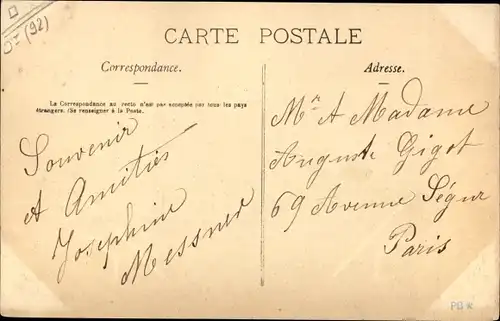 (92)
CARTE POSTALE
Correspondance.
Adresse.
La Correspondance au recto n'est pas acceptée par tous les pays
étrangers. (Se renseigner à la Poste.
Souvenir
et Amitiés
Joséphine
Messner
Mr et Madame
Auguste Gigot
69 Avenue Ségur
Paris